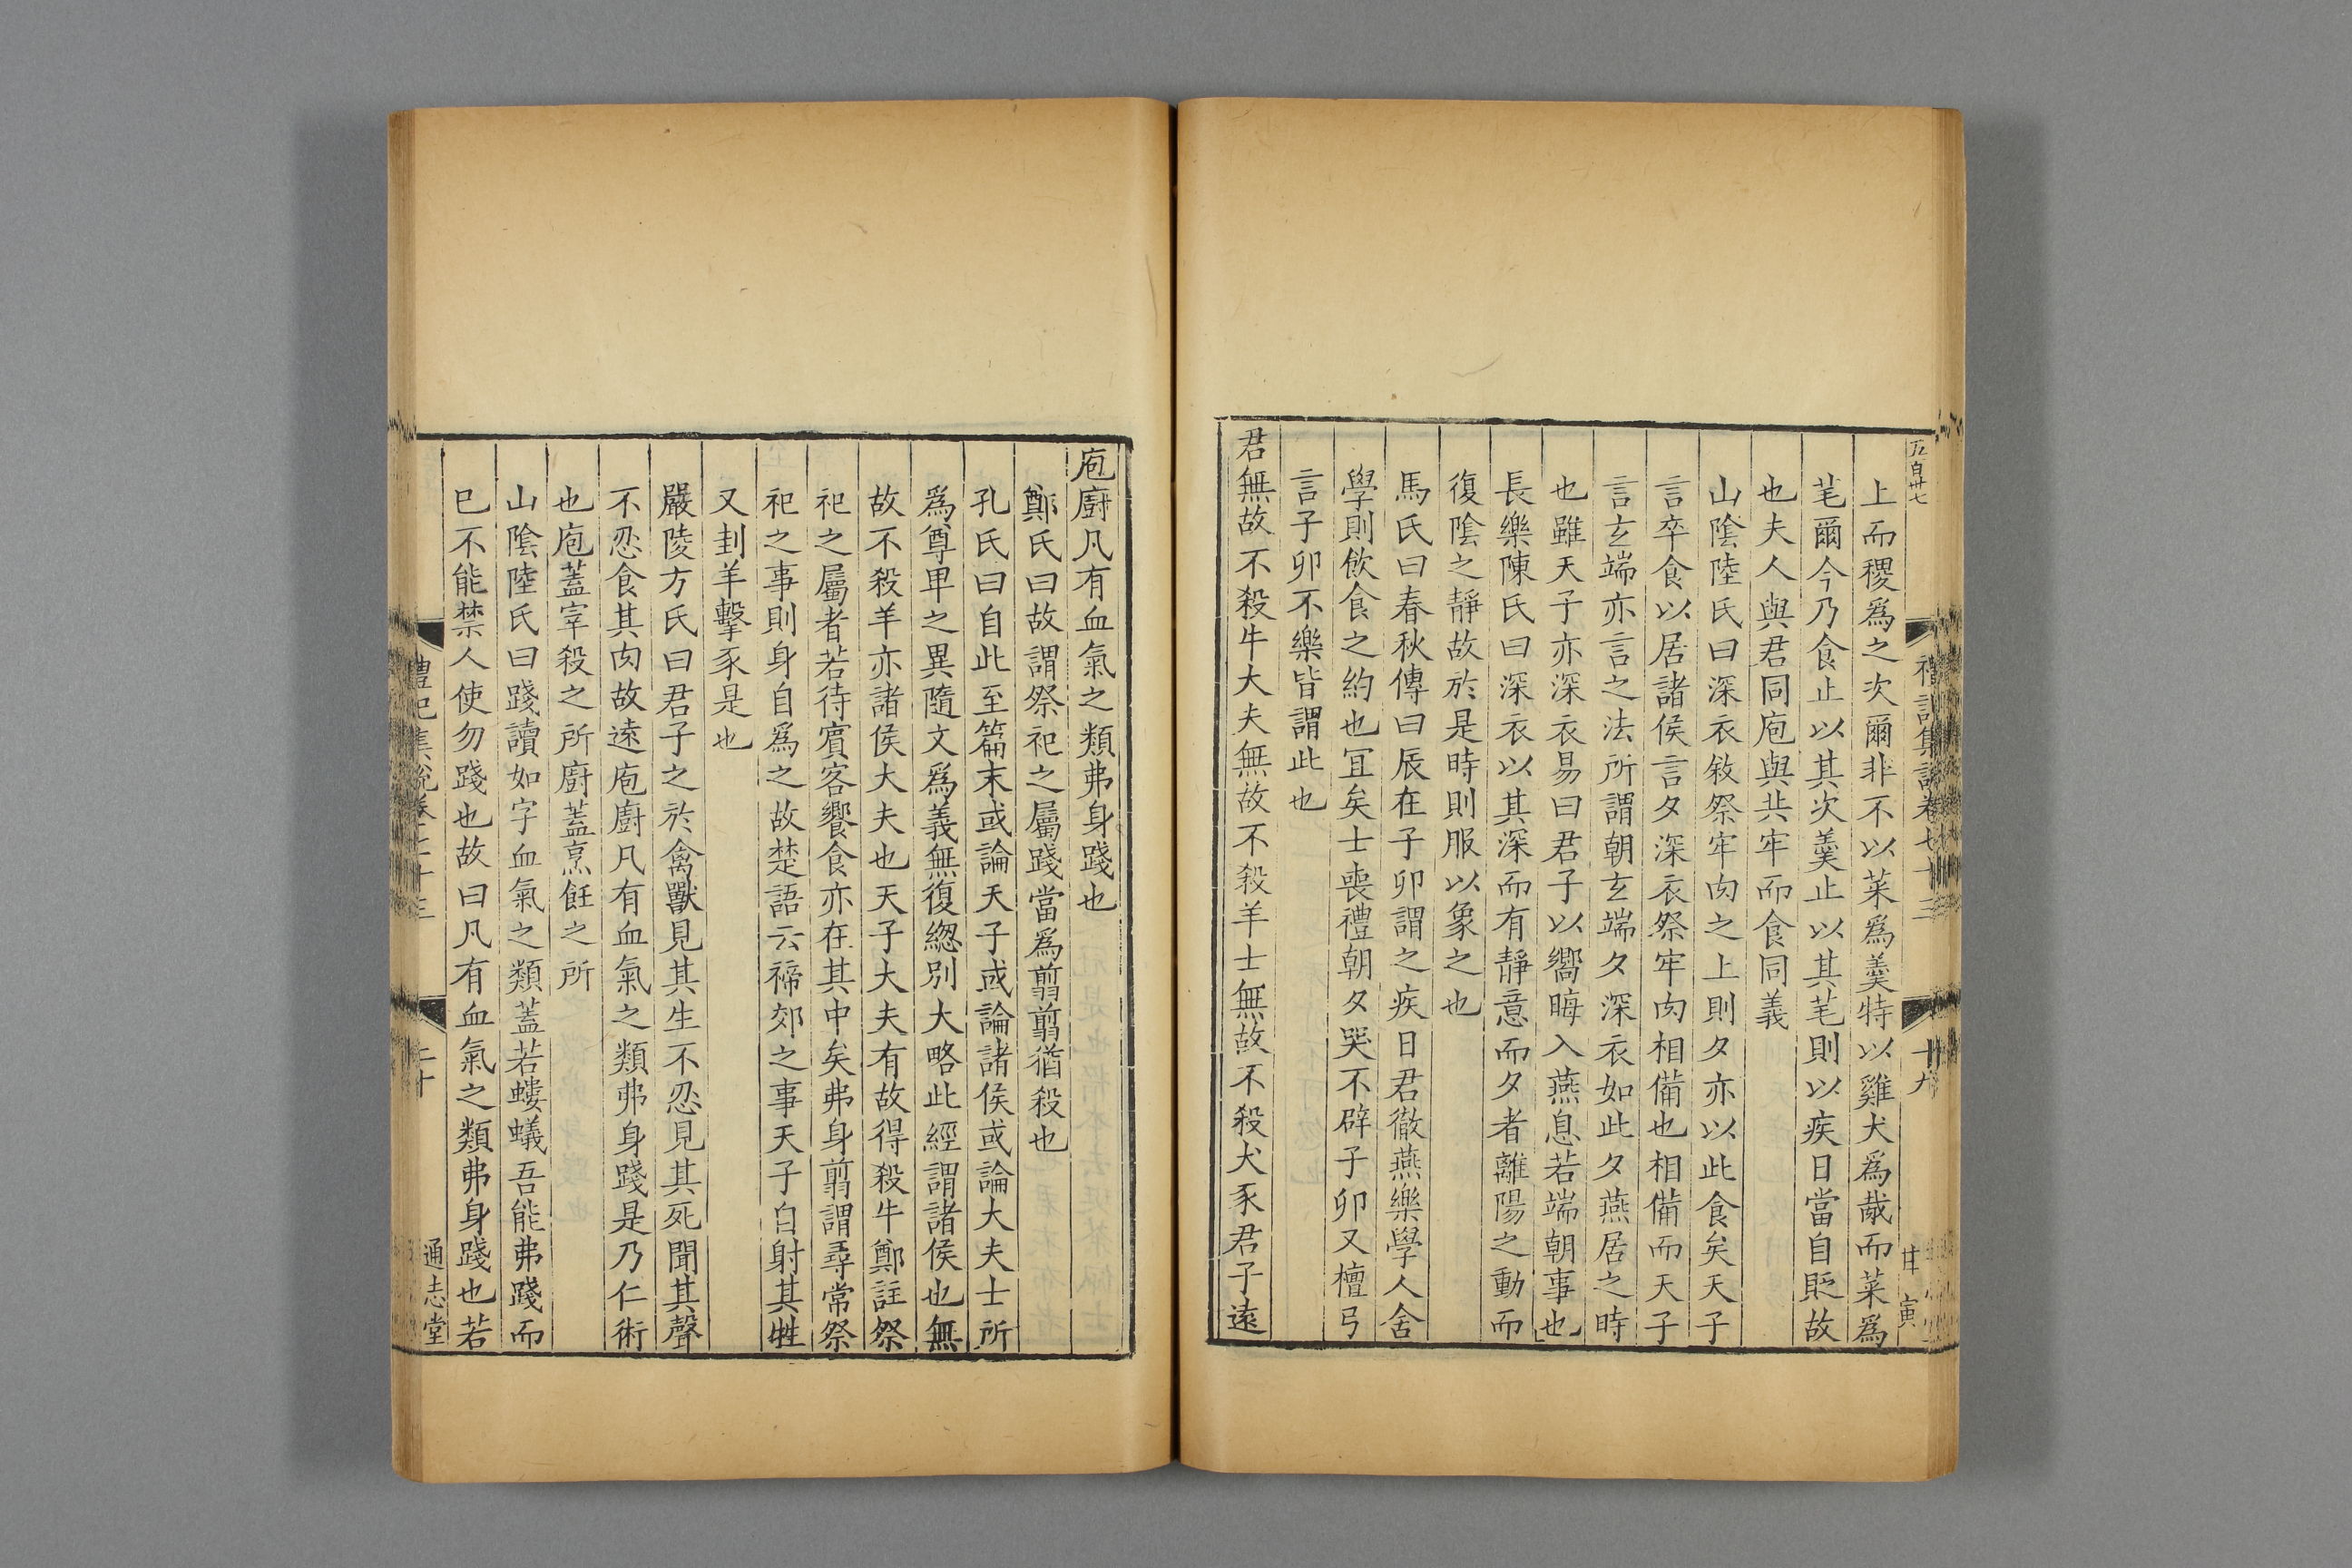 五百卅七
禮記集說卷七十三
十九
甘寅
上而稷爲之次爾非不以菜爲羹特以雞犬爲胾而菜爲
芼爾今乃食止以其次羹止以其芼則以疾日當自貶故
也夫人與君同庖與共牢而食同義
山陰陸氏曰深衣敘祭牢肉之上則夕亦以此食矣天子
言卒食以居諸侯言夕深衣祭牢肉相備也相備而天子
言玄端亦言之法所謂朝玄端夕深衣如此夕燕居之時
也雖天子亦深衣易曰君子以嚮晦入燕息若端朝事也
長樂陳氏曰深衣以其深而有靜意而夕者離陽之動而
復陰之靜故於是時則服以象之也
馬氏曰春秋傳曰辰在子卯謂之疾日君徹燕樂學人舍
學則飲食之約也宜矣士喪禮朝夕哭不辟子卯又檀弓
言子卯不樂皆謂此也
君無故不殺牛大夫無故不殺羊士無故不殺犬豕君子遠
庖廚凡有血氣之類弗身踐也
鄭氏曰故謂祭祀之屬踐當爲翦翦猶殺也
孔氏曰自此至篇末或論天子或論諸侯或論大夫士所
爲尊卑之異隨文爲義無復緫別大略此經謂諸侯也無
故不殺羊亦諸侯大夫也天子大夫有故得殺牛鄭註祭
祀之屬者若待賓客饗食亦在其中矣弗身翦謂尋常祭
祀之事則身自爲之故楚語云禘郊之事天子自射其牲
又刲羊擊豕是也
嚴陵方氏曰君子之於禽獸見其生不忍見其死聞其聲
不忍食其肉故遠庖廚凡有血氣之類弗身踐是乃仁術
也庖蓋宰殺之所廚蓋烹飪之所
山陰陸氏曰踐讀如字血氣之類蓋若螻蟻吾能弗踐而
已不能禁人使勿踐也故曰凡有血氣之類弗身踐也若
禮記集說卷七十三
二十
通志堂